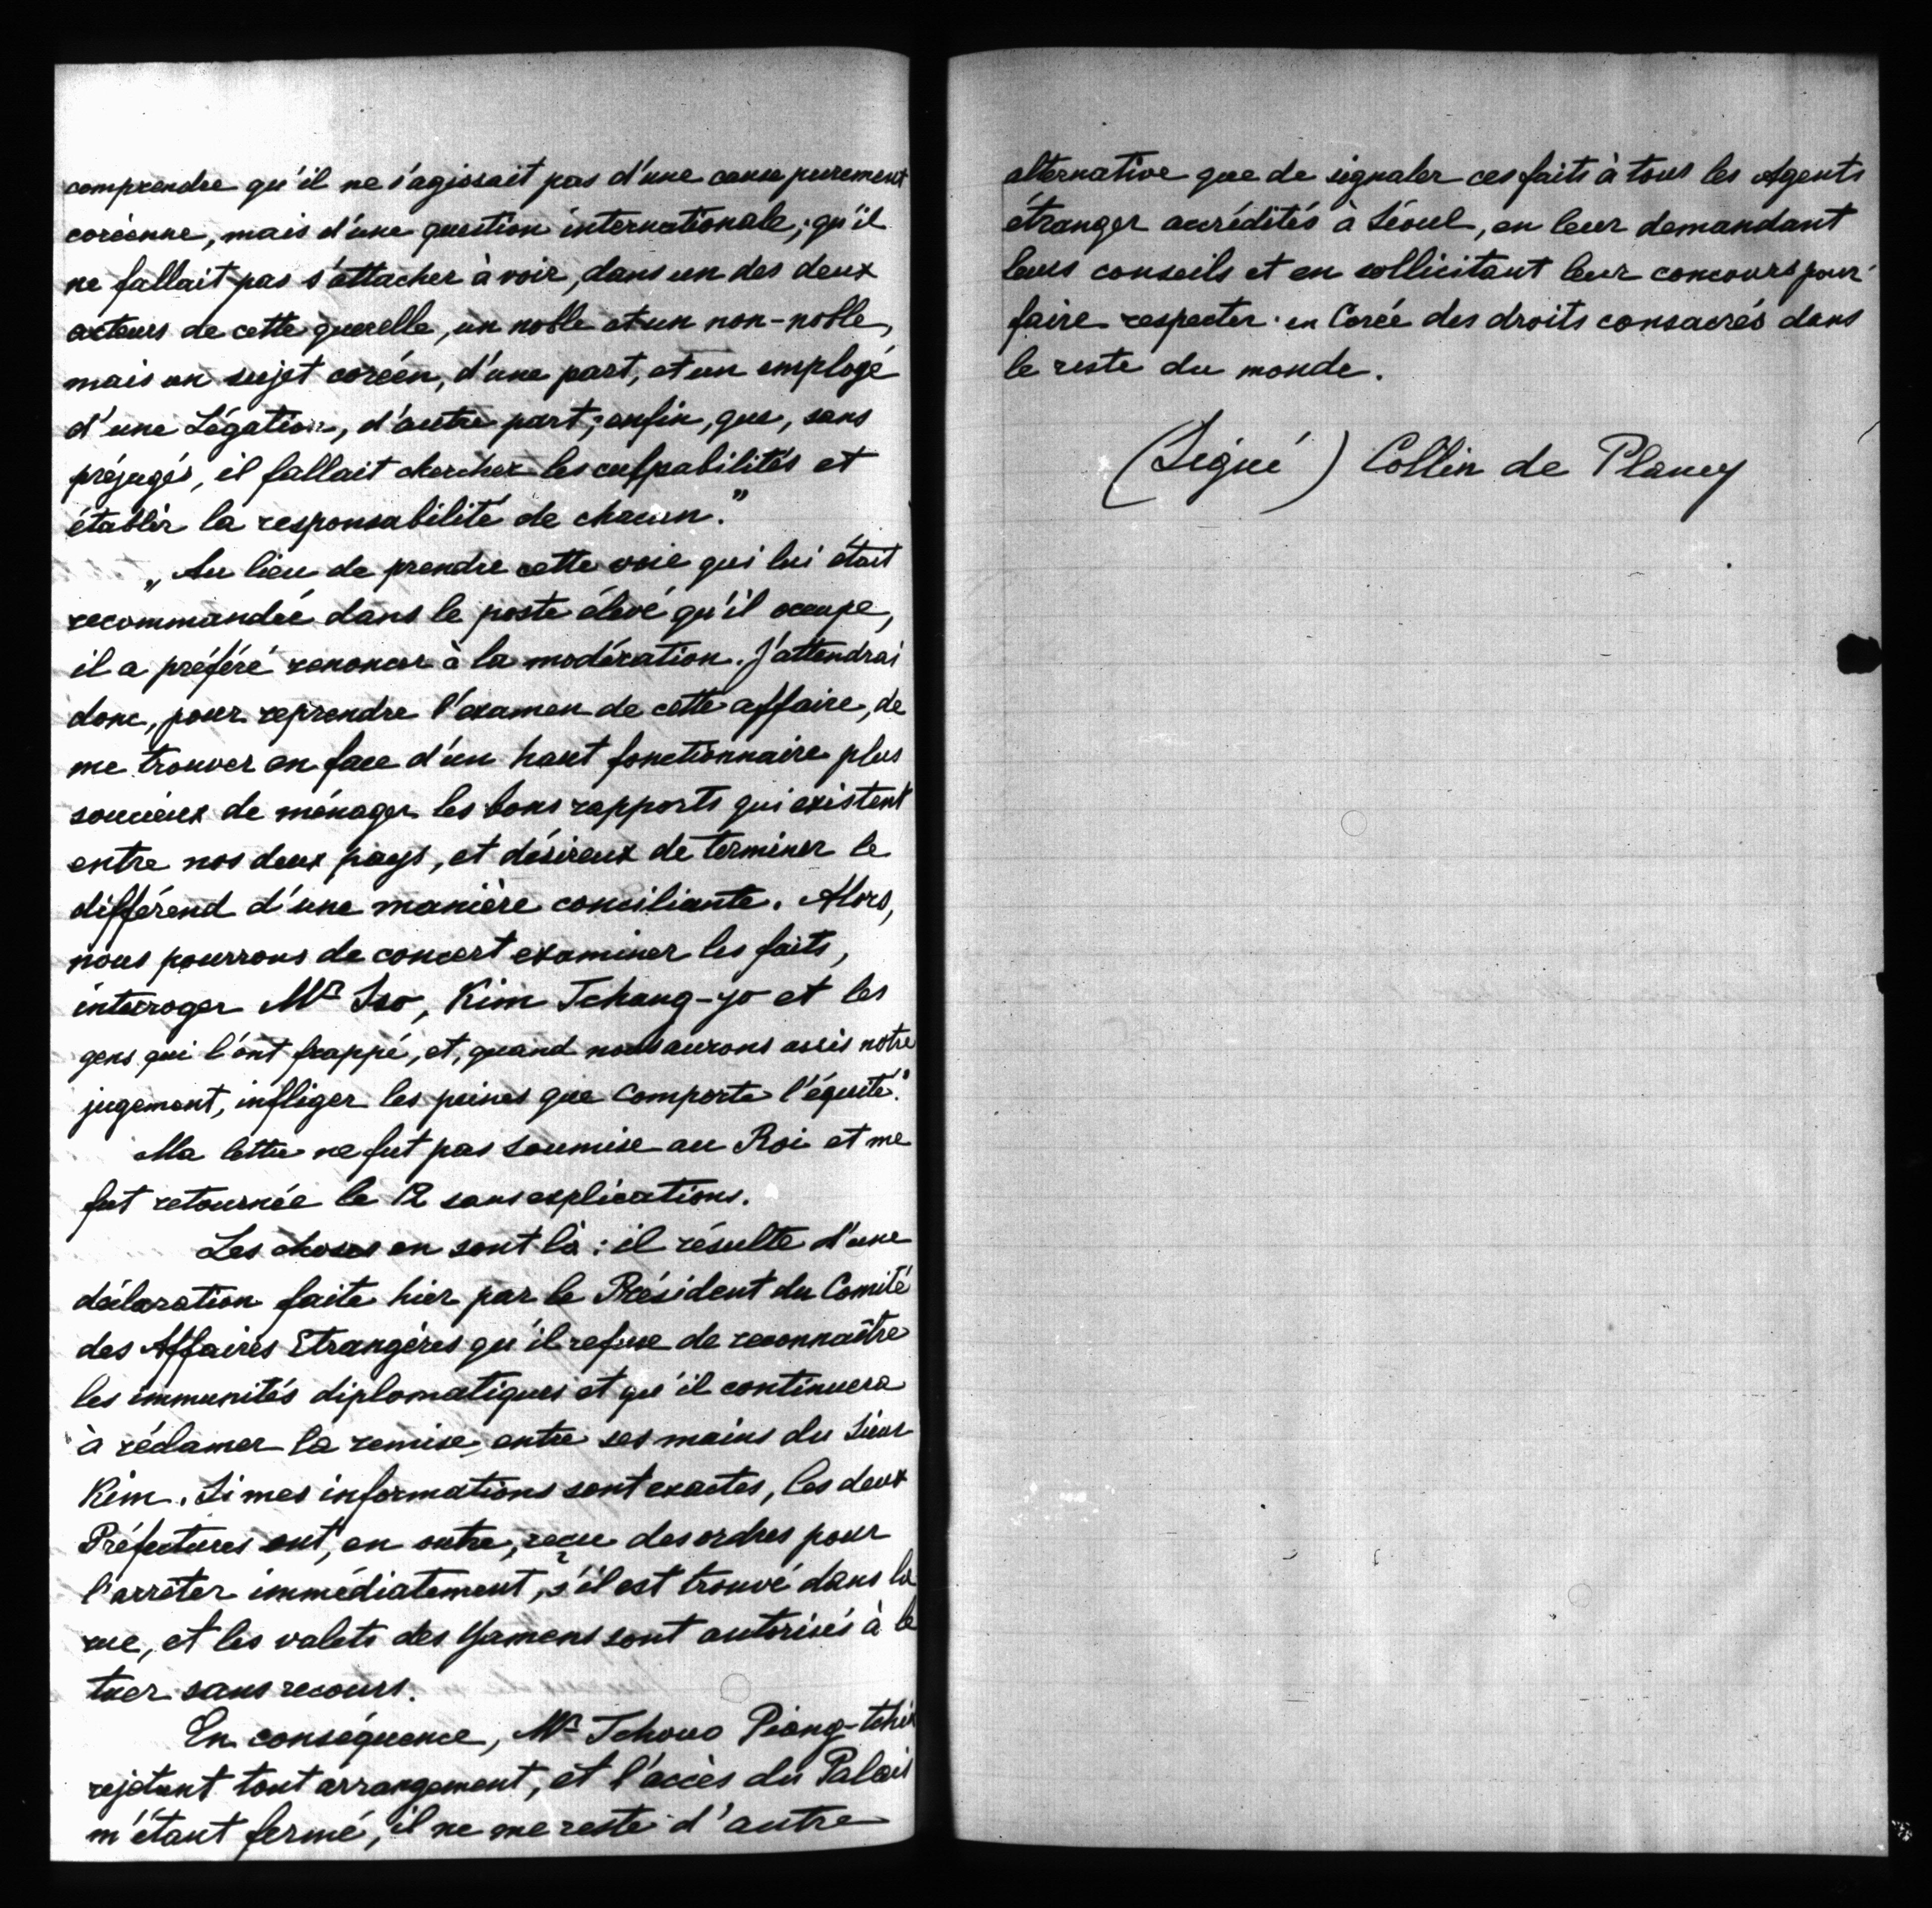 comprendre qu'il ne s'agissait pas d'une cause purement
coréenne, mais d'une question internationale; qu'il
ne fallait pas s'attacher à voir, dans un des deux
acteurs de cette querelle, un noble et un non-noble,
mais un sujet coréen, d'une part, et un employé
d'une Légation, d'autre part; enfin, que, sans
préjugés, il fallait chercher les culpabilités et
établir la responsabilité de chacun."
„Au lieu de prendre cette voie qui lui était
recommandée dans le poste élevé qu'il occupe,
il a préféré renoncer à la modération. J'attendrai
donc, pour reprendre l'examen de cette affaire, de
me trouver en face d'un haut fonctionnaire plus
soucieux de ménager les bons rapports qui existent
entre nos deux pays, et désireux de terminer le
différend d'une manière conciliante. Alors,
nous pourrons de concert examiner les faits,
interroger Mr Iso, Kim Tchang-yo et les
gens qui l'ont frappé, et, quand nous aurons assis notre
jugement, infliger les peines que comporte l'équité."
Ma lettre ne fut pas soumise au Roi et me
fut retournée le 12 sans explications.
Les choses en sont là: il résulte d'une
déclaration faite hier par le Président du Comité
des Affaires Etrangères qu'il refuse de reconnaître
les immunités diplomatiques et qu'il continuera
à réclamer la remise entre ses mains du Sieur
Kim. Si mes informations sont exactes, les deux
Préfectures ont, en outre, reçu des ordres pour
l'arrêter immédiatement, s'il est trouvé dans la
rue, et les valets des Yamens sont autorisés à le
tuer sans recours.
En conséquence, Mr Tchouo Piong-tchik
rejetant tout arrangement, et l'accès du Palais
m'étant fermé, il ne me reste d'autre
alternative que de signaler ces faits à tous les Agents
étranger accrédités à Séoul, en leur demandant
leurs conseils et en sollicitant leur concours pour
faire respecter en Corée des droits consacrés dans
le reste du monde.
(Signé) Collin de Plancy